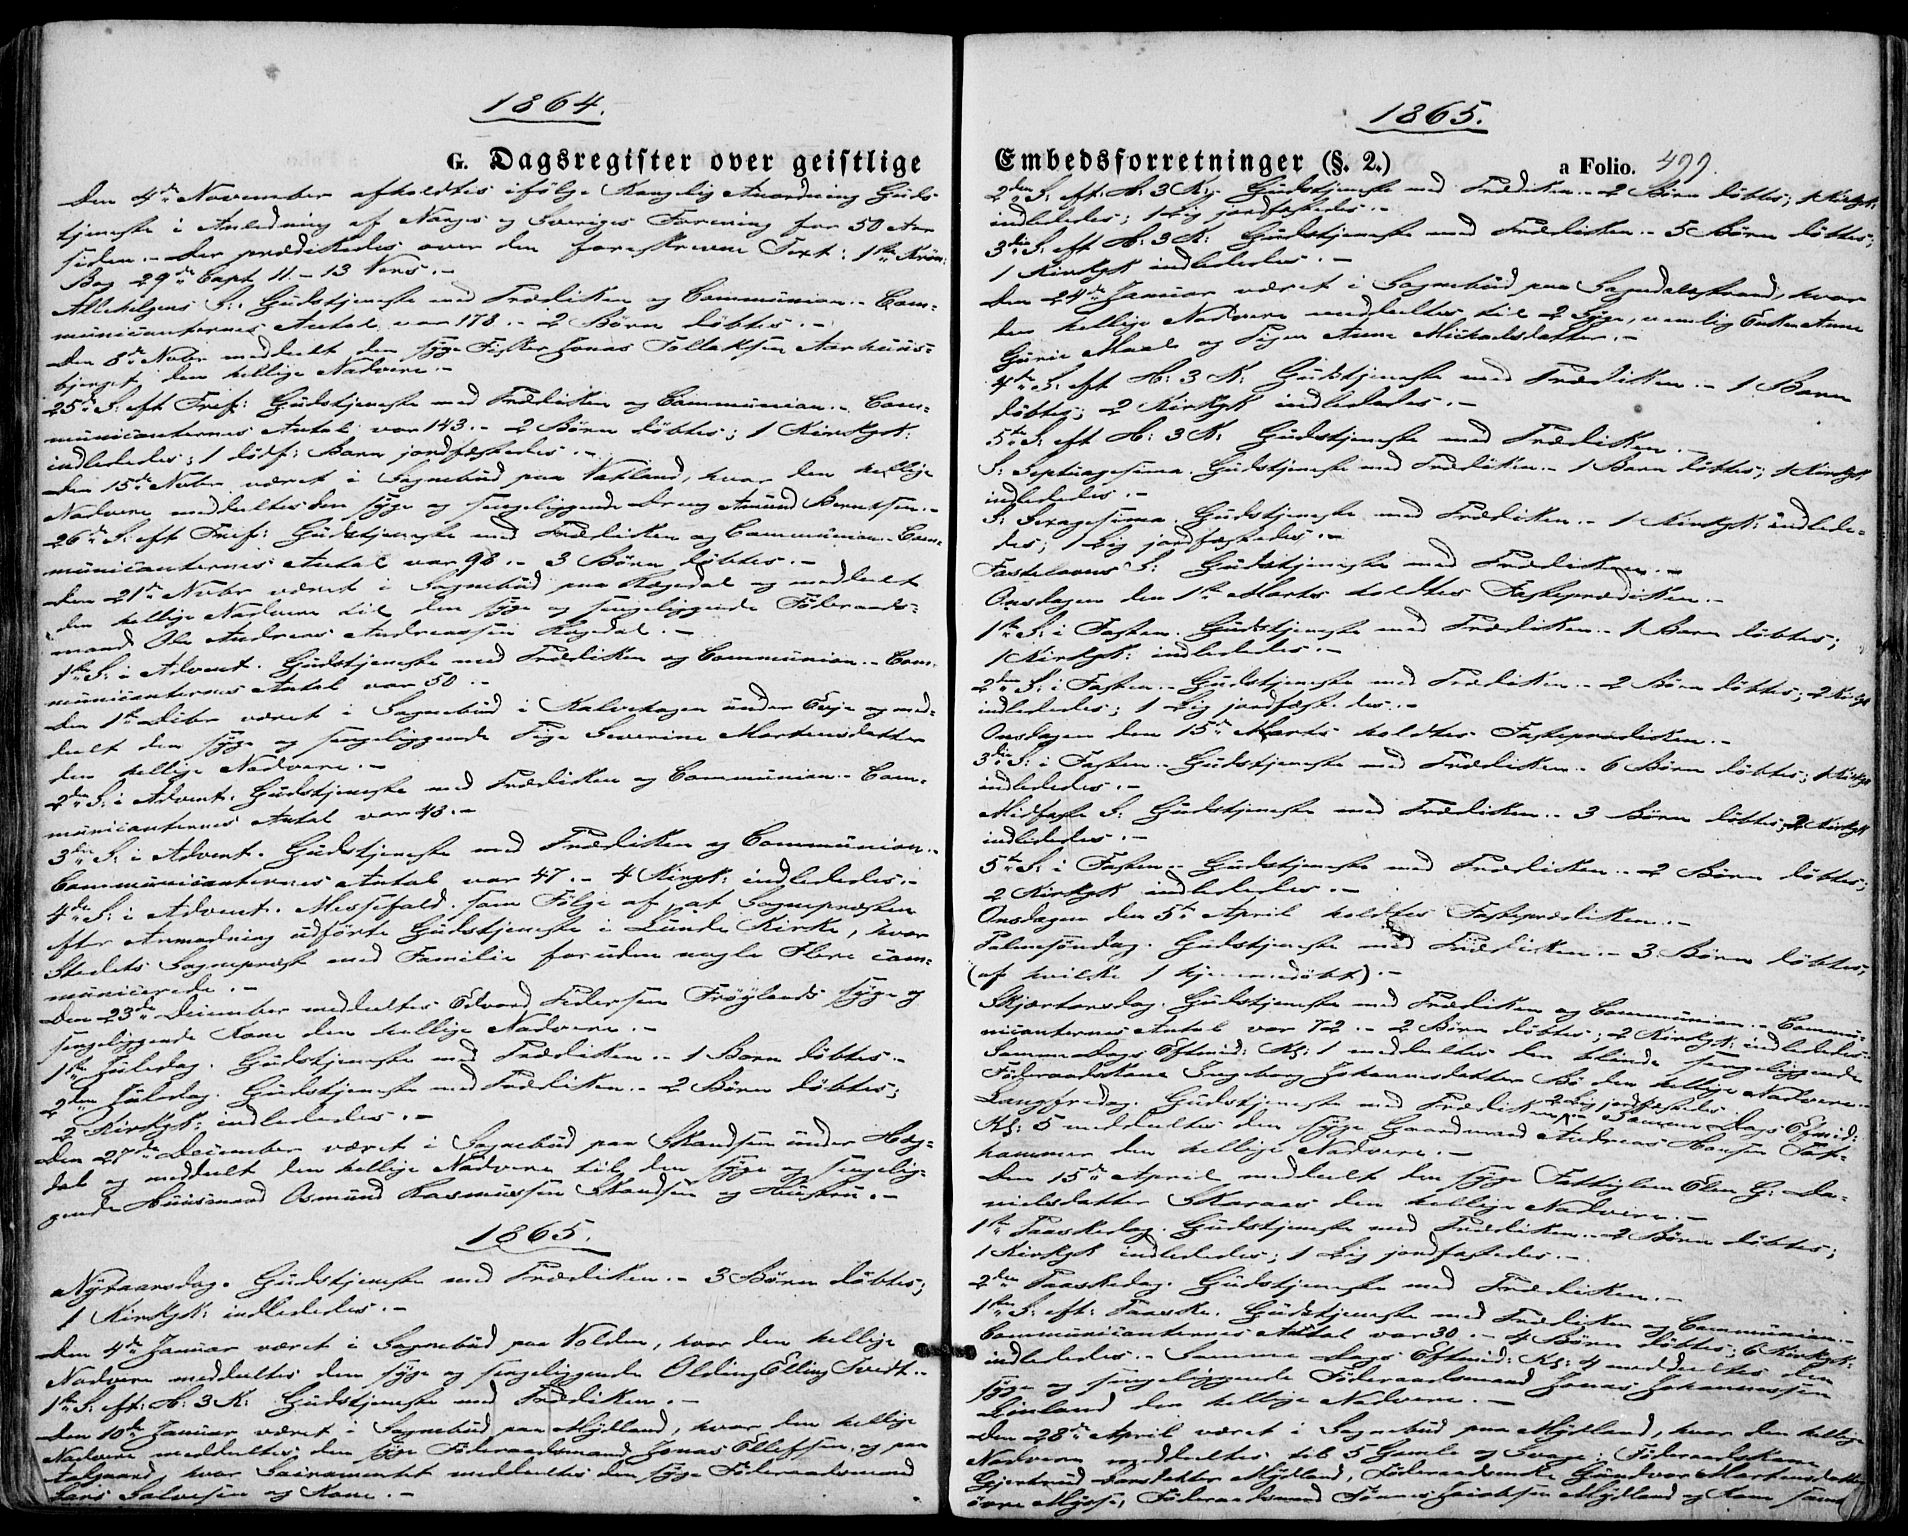 1864.
G. Dagsregister over geistlige
Den 4de November afholdtes ifølge Kongelig Anordning Guds-
tjeneste i Anledning af Norges og Sveriges Forening for 50 Aar
siden. - Der prædikedes over den foreskrevne Text: 1ste Krøn:
Bog 29de Capt 11 - 13 Vers. -
Allehelgens S: Gudstjeneste med Prædiken og Communion. - Com-
municanternes Antal var 178. - 2 Børn døbtes. -
Den 8de Novbr meddeelt den syge Jonas Tollaksen Aarhuus-
bjerget den hellige Nadvere. -
25de S: eft Tref: Gudstjeneste med Prædiken og Communion. - Com-
municanternes Antal var 143. - 2 Børn døbtes; 1 Kirkgk:
indlededes; 1 dødf: Barn jordfæstedes. -
Den 15de Novbr været i Sognebud paa Vatland, hvor den hellige
Nadvere meddeeltes den syge og sengeliggende Dreng Amund Berntsen. -
26de S: eft Tref: Gudstjeneste med Prædiken og Communion. - Com-
municanternes Antal var 98. - 3 Børn døbtes. -
Den 21de Novbr været i Sognebud paa Rægedal og meddeelt
den hellige Nadvere til den syge og sengeliggende Føderaads-
mand Ole Andreas Andreassen Rægedal. -
1ste S: i Advent. Gudstjeneste med Prædiken og Communion. - Com-
municanternes Antal var 50. -
Den 1ste Decbr været i Sognebud i Kalvehagen under Eeje og med-
deelt den syge og sengeliggende Pige Severine Martensdatter
den hellige Nadvere. -
2den S: i Advent. Gudstjeneste med Prædiken og Communion. - Com-
municanternes Antal var 43. -
3die S: i Advent. Gudstjeneste med Prædiken og Communion. -
Communicanternes Antal var 47. - 4 Kirkgk: indlededes. -
4de S: i Advent. Messefald, som Følge af, at Sognepræsten
efter Anmodning udførte Gudstjeneste i Lunde Kirke, hvor
Stedets Sognepræst med Familie foruden nogle Flere com-
municerede. -
Den 23de December meddeeltes Edvard Pedersen Frøylands syge og
sengeliggende Kone den hellige Nadvere. -
1ste Juledag. Gudstjeneste med Prædiken. - 1 Barn døbtes. -
2den Juledag. Gudstjeneste med Prædiken. - 2 Børn døbtes;
2 Kirkgk: indlededes. -
Den 27de December været i Sognebud paa Skandsen under Hæg-
dal og meddeelt den hellige Nadvere til den syge og sengelig-
gende Huusmand Osmund Rasmussen Skandsen og Hustru. -
1865.
Nytaarsdag. Gudstjeneste med Prædiken. - 3 Børn døbtes;
1 Kirkgk: indlededes. -
Den 4de Januar været i Sognebud paa Volden, hvor den hellige
Nadvere meddeeltes den syge og sengeliggende Olding Elling Tvedt. -
1ste S: eft: H: 3 K: Gudstjeneste med Prædiken. -
Den 10de Januar været i Sognebud paa Mydland, hvor den hellige
Nadvere meddeeltes den syge Føderaadsmand Jonas Ellefsen, og paa
Aalgaard, hvor Sacramentet meddeeltes den syge Føderaadsmand
Lars Salvesen og Kone. -
1865.
Embedsforretninger (§. 2.) a Folio. 499.
2den S: eft: H: 3 K: Gudstjeneste med Prædiken. - 2 Børn døbtes; 1 Kirkgk:
indlededes; 1 Lig jordfæstedes. -
3die S: eft H: 3 K: Gudstjeneste med Prædiken. - 5 Børn døbtes;
1 Kirkgk indlededes. -
Den 24de Januar været i Sognebud paa Sogndalsstrand, hvor
den hellige Nadvere meddeeltes til 2 Syge, nemlig Enken Anne
Gurie Maal og Pigen Anne Michaelsdatter. -
4de S: eft H: 3 K: Gudstjeneste med Prædiken. - 1 Barn
døbtes; 2 Kirkgk indlededes. -
5te S: eft H: 3 K: Gudstjeneste med Prædiken. -
S: Septuagesima. Gudstjeneste med Prædiken. - 1 Barn døbtes; 1 Kirkgk
indlededes. -
S: Sexagesima. Gudstjeneste med Prædiken. - 1 Kirkgk: indlede-
des; 1 Lig jordfæstedes. -
Fastelavns S: Gudstjeneste med Prædiken. -
Onsdagen den 1ste Marts holdtes Fasteprædiken. -
1ste S: i Fasten. Gudstjeneste med Prædiken. - 1 Barn døbtes;
1 Kirkgk: indlededes. -
2den S: i Fasten. - Gudstjeneste med Prædiken. - 2 Børn døbtes; 2 Kirkgk
indlededes; 1 Lig jordfæstedes. -
Onsdagen den 15de Marts holdtes Fasteprædiken. -
3die S: i Fasten. - Gudstjeneste med Prædiken. - 6 Børn døbtes; 1 Kirkgk
indlededes. -
Midfaste S: Gudstjeneste med Prædiken. - 3 Børn døbtes; 2 Kirkgk
indlededes. -
5te S: i Fasten. - Gudstjeneste med Prædiken. - 2 Børn døbtes;
2 Kirkgk indlededes. -
Onsdagen den 5te April holdtes Fasteprædiken. -
Palmesøndag. Gudstjeneste med Prædiken. - 3 Børn døbtes,
(af hvilke 1 hjemmedøbt). -
Skjærtorsdag. Gudstjeneste med Prædiken og Communion. - Commu-
nicanternes Antal var 72. - 2 Børn døbtes; 2 Kirkgk: indlededes. -
Samme Dags Eftmid: Kl: 1 meddeeltes den blinde sengeliggende
Føderaadskone Ingeborg Johannesdatter Bø den hellige Nadvere. -
Langfredag. Gudstjeneste med Prædiken. - 2 Lig jordfæstedes. Samme Dags Eftmid:
Kl: 5 meddeeltes den syge Gaardmand Andreas Hansen Tof-
hammer den hellige Nadvere. -
Den 15de April meddeelt den syge Fattiglem Elen G: Da-
nielsdatter Skaraas den hellige Nadvere. -
1ste Paaskedag. Gudstjeneste med Prædiken. - 2 Børn døbtes;
1 Kirkgk indlededes; 1 Lig jordfæstedes. -
2den Paaskedag. Gudstjeneste med Prædiken. -
1ste S: eft: Paaske. Gudstjeneste med Prædiken og Communion. -
Communicanternes Antal var 30. - 4 Børn døbtes; 6 Kirkgk:
indlededes. - Samme Dags Eftmid: Kl: 4 meddeeltes den
syge og sengeliggende Føderaadsmand Jonas Johannessen
Linland den hellige Nadvere. -
Den 28de April været i Sognebud paa Mydland, hvor den hellige
Nadvere meddeeltes til 5 Gamle og Svage, Føderaadskone
Gjertrud Larsdatter Mydland, Føderaadsenke Gundvor Martensdatter
øvre Mysse, Føderaadsmand Tønnes Jacobsen Mydland og Kone samt